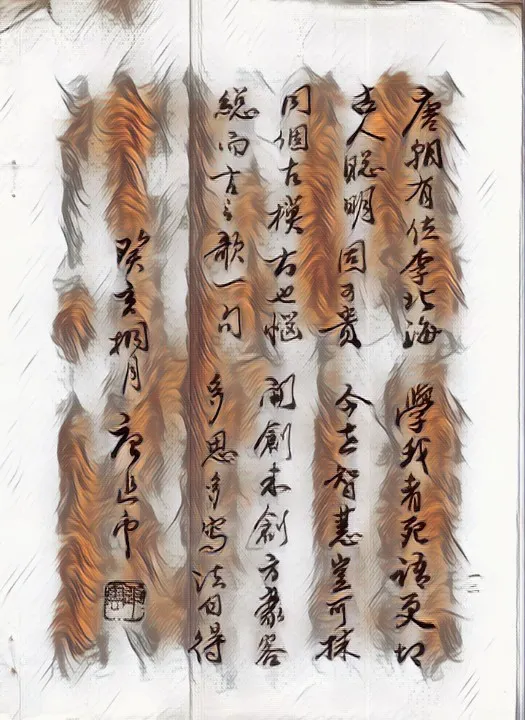 唐朝有位李北海 學我者死語更切
古人聰明固可貴 今智慧豈可抹
同個古模古也惱 創創方
總而言之歌一句 多思多寫法自得
癸亥桐月